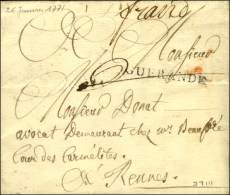 26 Janvier 1771
franc
Monsieur
GUERANDE
Monsieur Donat
avocat Demeurant chez
Cour des Carmelittes
a Rennes